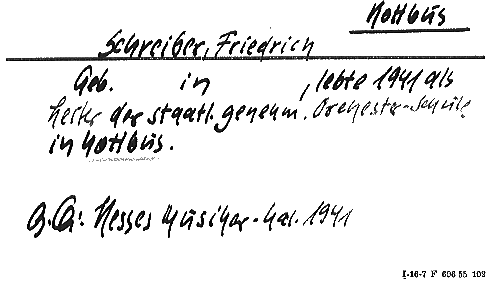 Kottbus
Schreiber, Friedrich
Geb. in , lebte 1941 als
Leiter der staatl. genehm. Orchester-Schule
in Kottbus.
Hesses Musiker-Kal. 1941
I-16-7 F 606 55 102